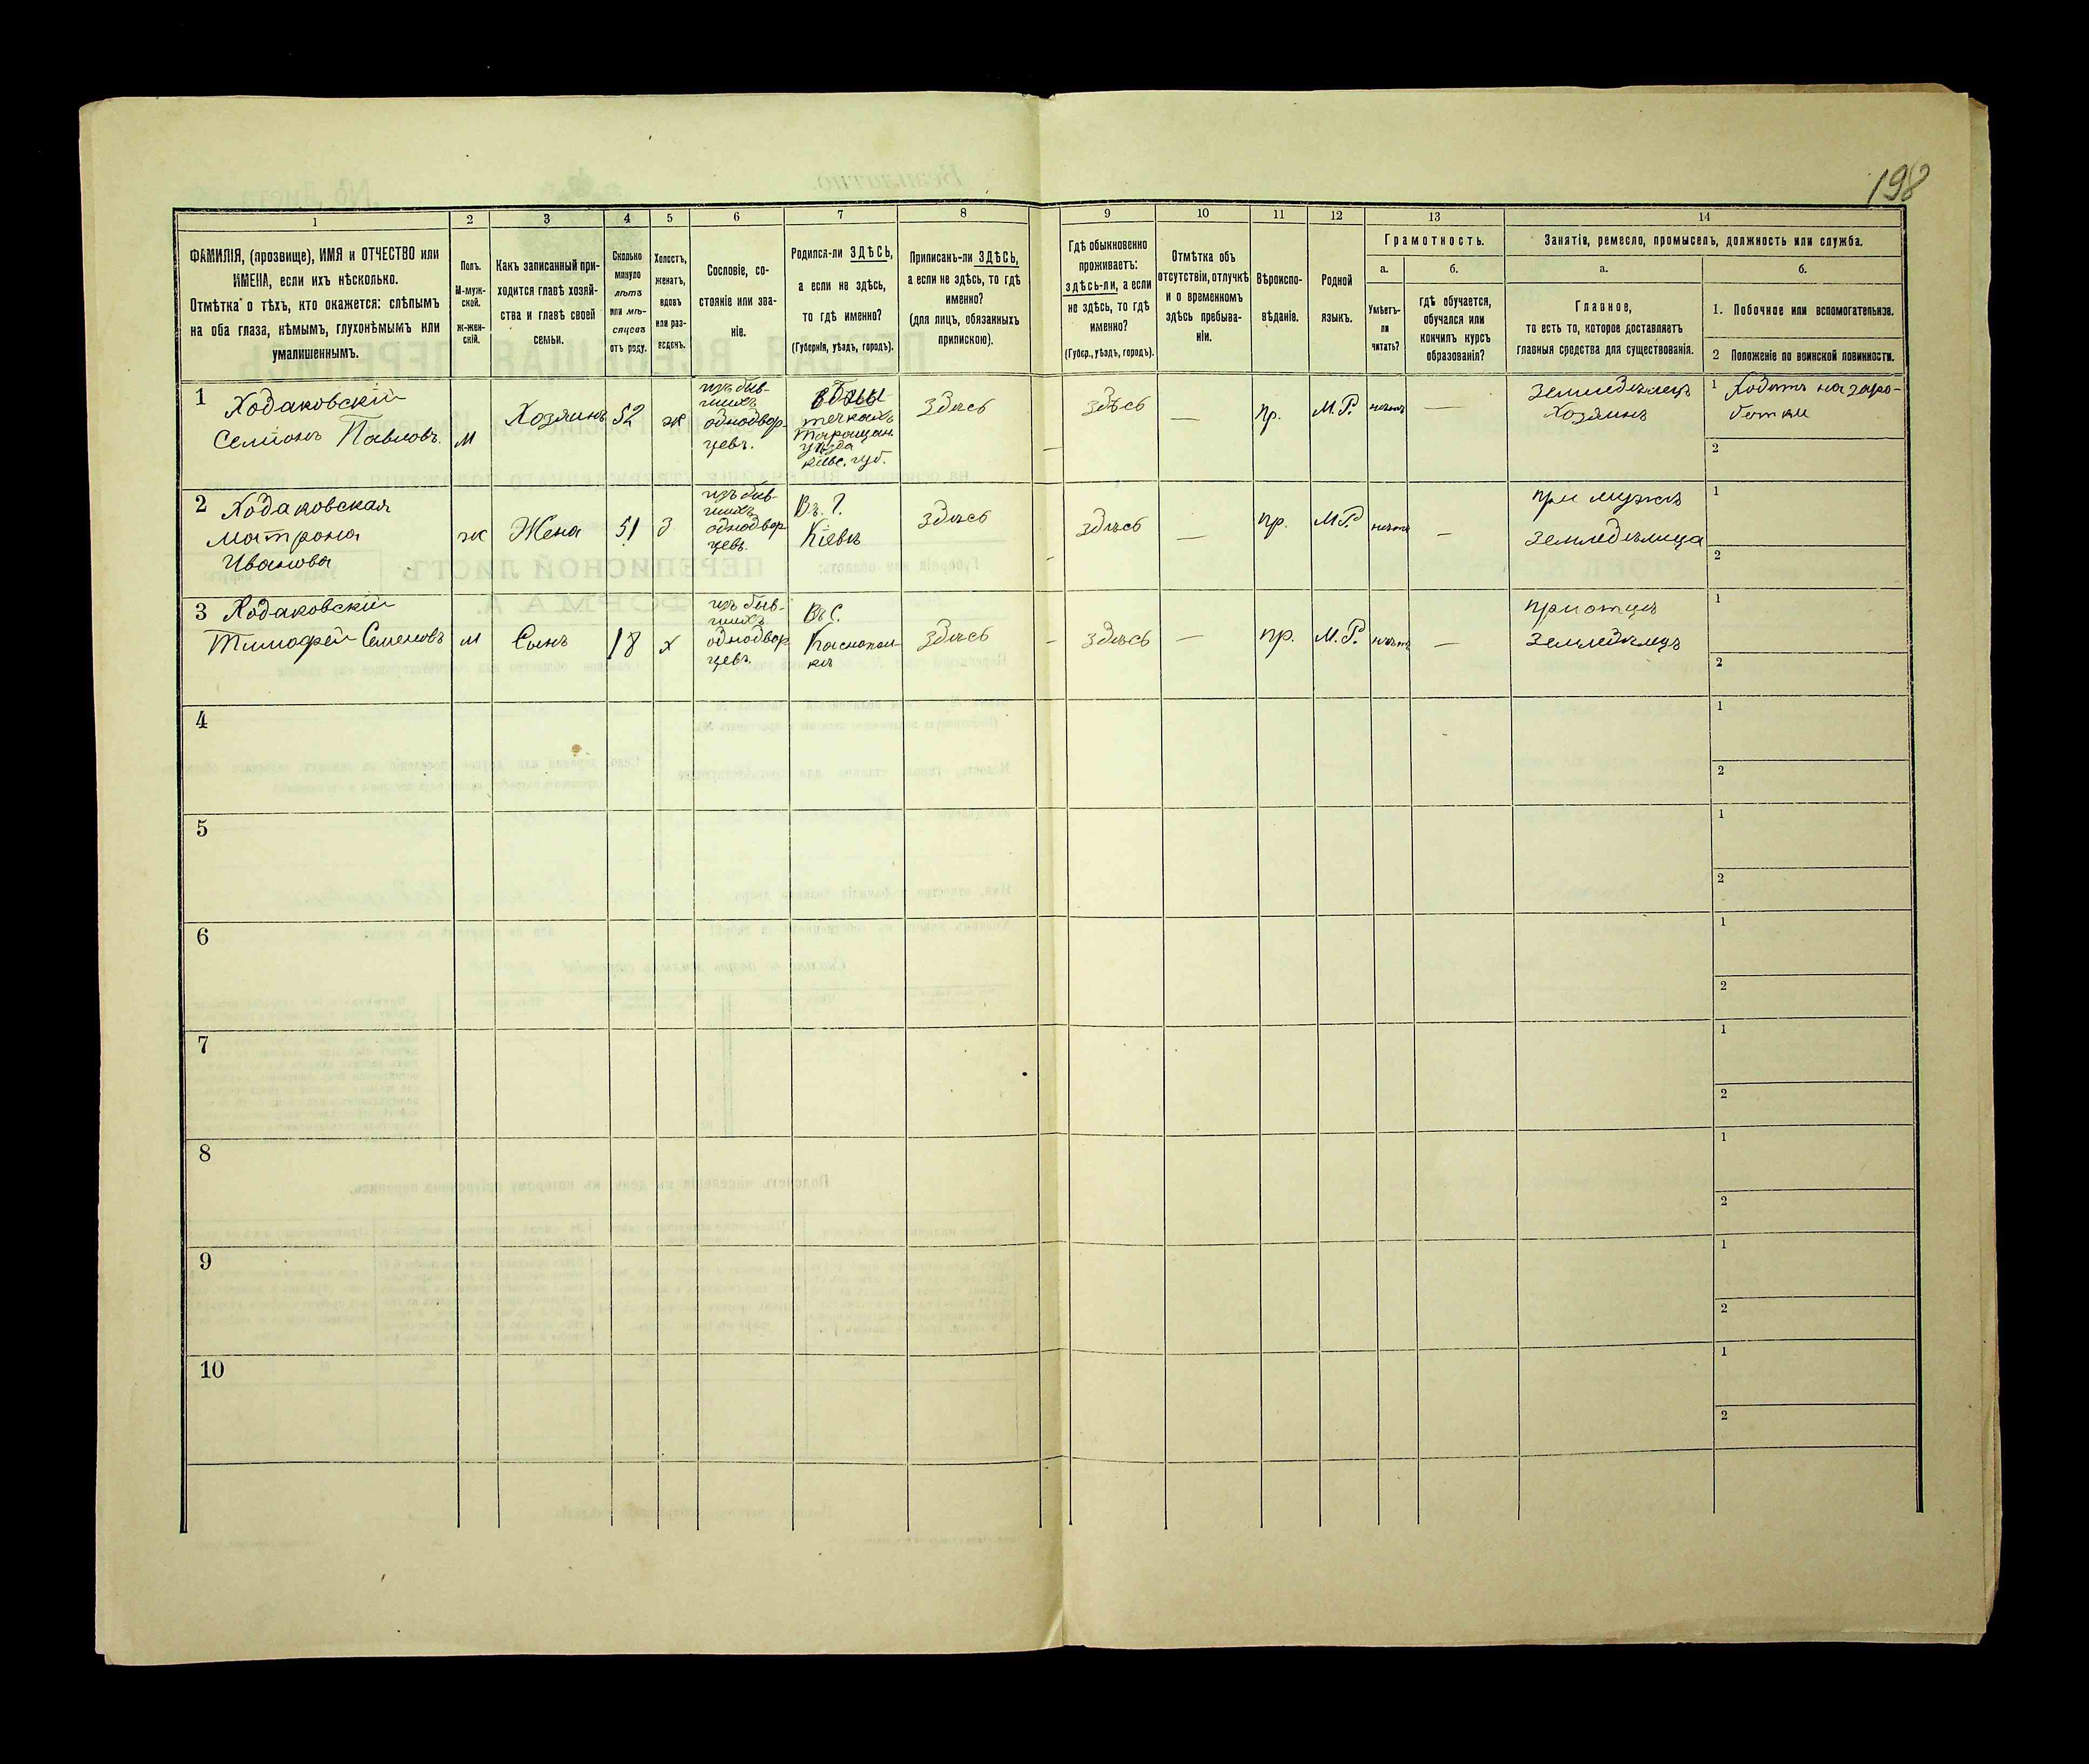 198
1 2 3 4 5 6 7 8 9 10 11 12 13 14
ФАМИЛІЯ, (прозвище), ИМЯ и ОТЧЕСТВО или
ИМЕНА, если ихъ нѣсколько.
Отмѣтка о тѣхъ, кто окажется: слѣпымъ
на оба глаза, нѣмымъ, глухонѣмымъ или
умалишеннымъ.
Полъ.
М-муж-
ской.
Ж-жен-
скій.
Какъ записанный при-
ходится главѣ хозяй-
ства и главѣ своей
семьи.
Сколько
минуло
лѣтъ
или мѣ-
сяцевъ
отъ роду.
Холостъ,
женатъ,
вдовъ
или раз-
веденъ.
Сословіе, со-
стояніе или зва-
ніе.
Родился-ли ЗДѢСЬ,
а если не здѣсь,
то гдѣ именно?
(Губернія, уѣздъ, городъ).
Приписанъ-ли ЗДѢСЬ,
а если не здѣсь, то гдѣ
именно?
(для лицъ, обязанныхъ
припискою).
Гдѣ обыкновенно
проживаетъ:
здѣсь-ли, а если
не здѣсь, то гдѣ
именно?
(Губер., уѣздъ, городъ).
Отмѣтка объ
отсутствіи, отлучкѣ
и о временномъ
здѣсь пребыва-
ніи.
Вѣроиспо-
вѣданіе.
Родной
языкъ.
Грамотность.
а.
Умѣетъ-
ли
читать?
б.
гдѣ обучается,
обучался или
кончилъ курсъ
образованія?
Занятія, ремесло, промыселъ, должность или служба.
а.
Главное,
то есть то, которое доставляетъ
главныя средства для существованія.
б.
1. Побочное или вспомогательное.
2 Положеніе по воинской повинности.
1 Ходаковскій
Семіонъ Павловъ
м
Хозяинъ
52
ж
изъ быв-
шихъ
однодвор-
цевъ.
Таращан.
уѣзда
Кіевс. губ.
Здѣсь
здѣсь
—
пр.
М.Р.
нѣтъ
—
Земледѣлецъ
Хозяинъ
1 Ходитъ на заро-
ботки
2
2 Ходаковская
Матрона
Иванова
ж
Жена
51
З
изъ быв-
шихъ
однодвор-
цевъ.
Кіевъ
Здѣсь
здѣсь
—
пр.
М.Р.
нѣтъ
—
при мужѣ
земледѣлица
1
2
3 Ходаковскій
Тимофей Семеновъ
м
Сынъ
18
х
изъ быв-
шихъ
однодвор-
цевъ.
Въ С.
Здѣсь
здѣсь
—
пр.
М.Р.
нѣтъ
—
при отцѣ
земледѣлецъ
1
2
4
1
2
5
1
2
6
1
2
7
1
2
8
1
2
9
1
2
10
1
2